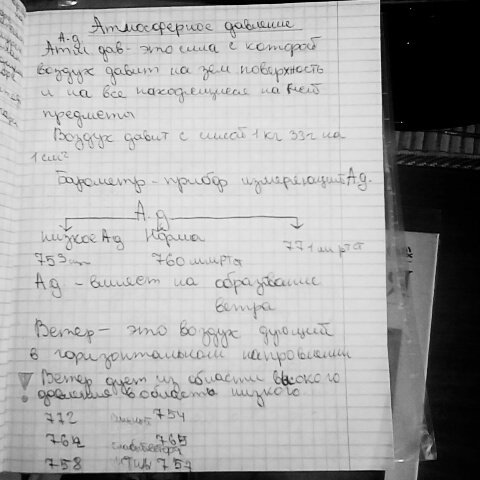 Атмосферное давление
А.д
Атм дав- это сила с которой
воздух давит на зем поверхность
и на все находящиеся на ней
предметы
Воздух давит с силой 1 кг 33г на
1 см²
Барометр - прибор измеряющий Ад.
А.д
низкое Ад Норма
753 760 мм рт ст 771 мм рт ст
Ад - влияет на образование
ветра
Ветер - это воздух дующий
в горизонтальном направлении
! Ветер дует из области высокого
давления в область низкого
772 754
764 765
758 757